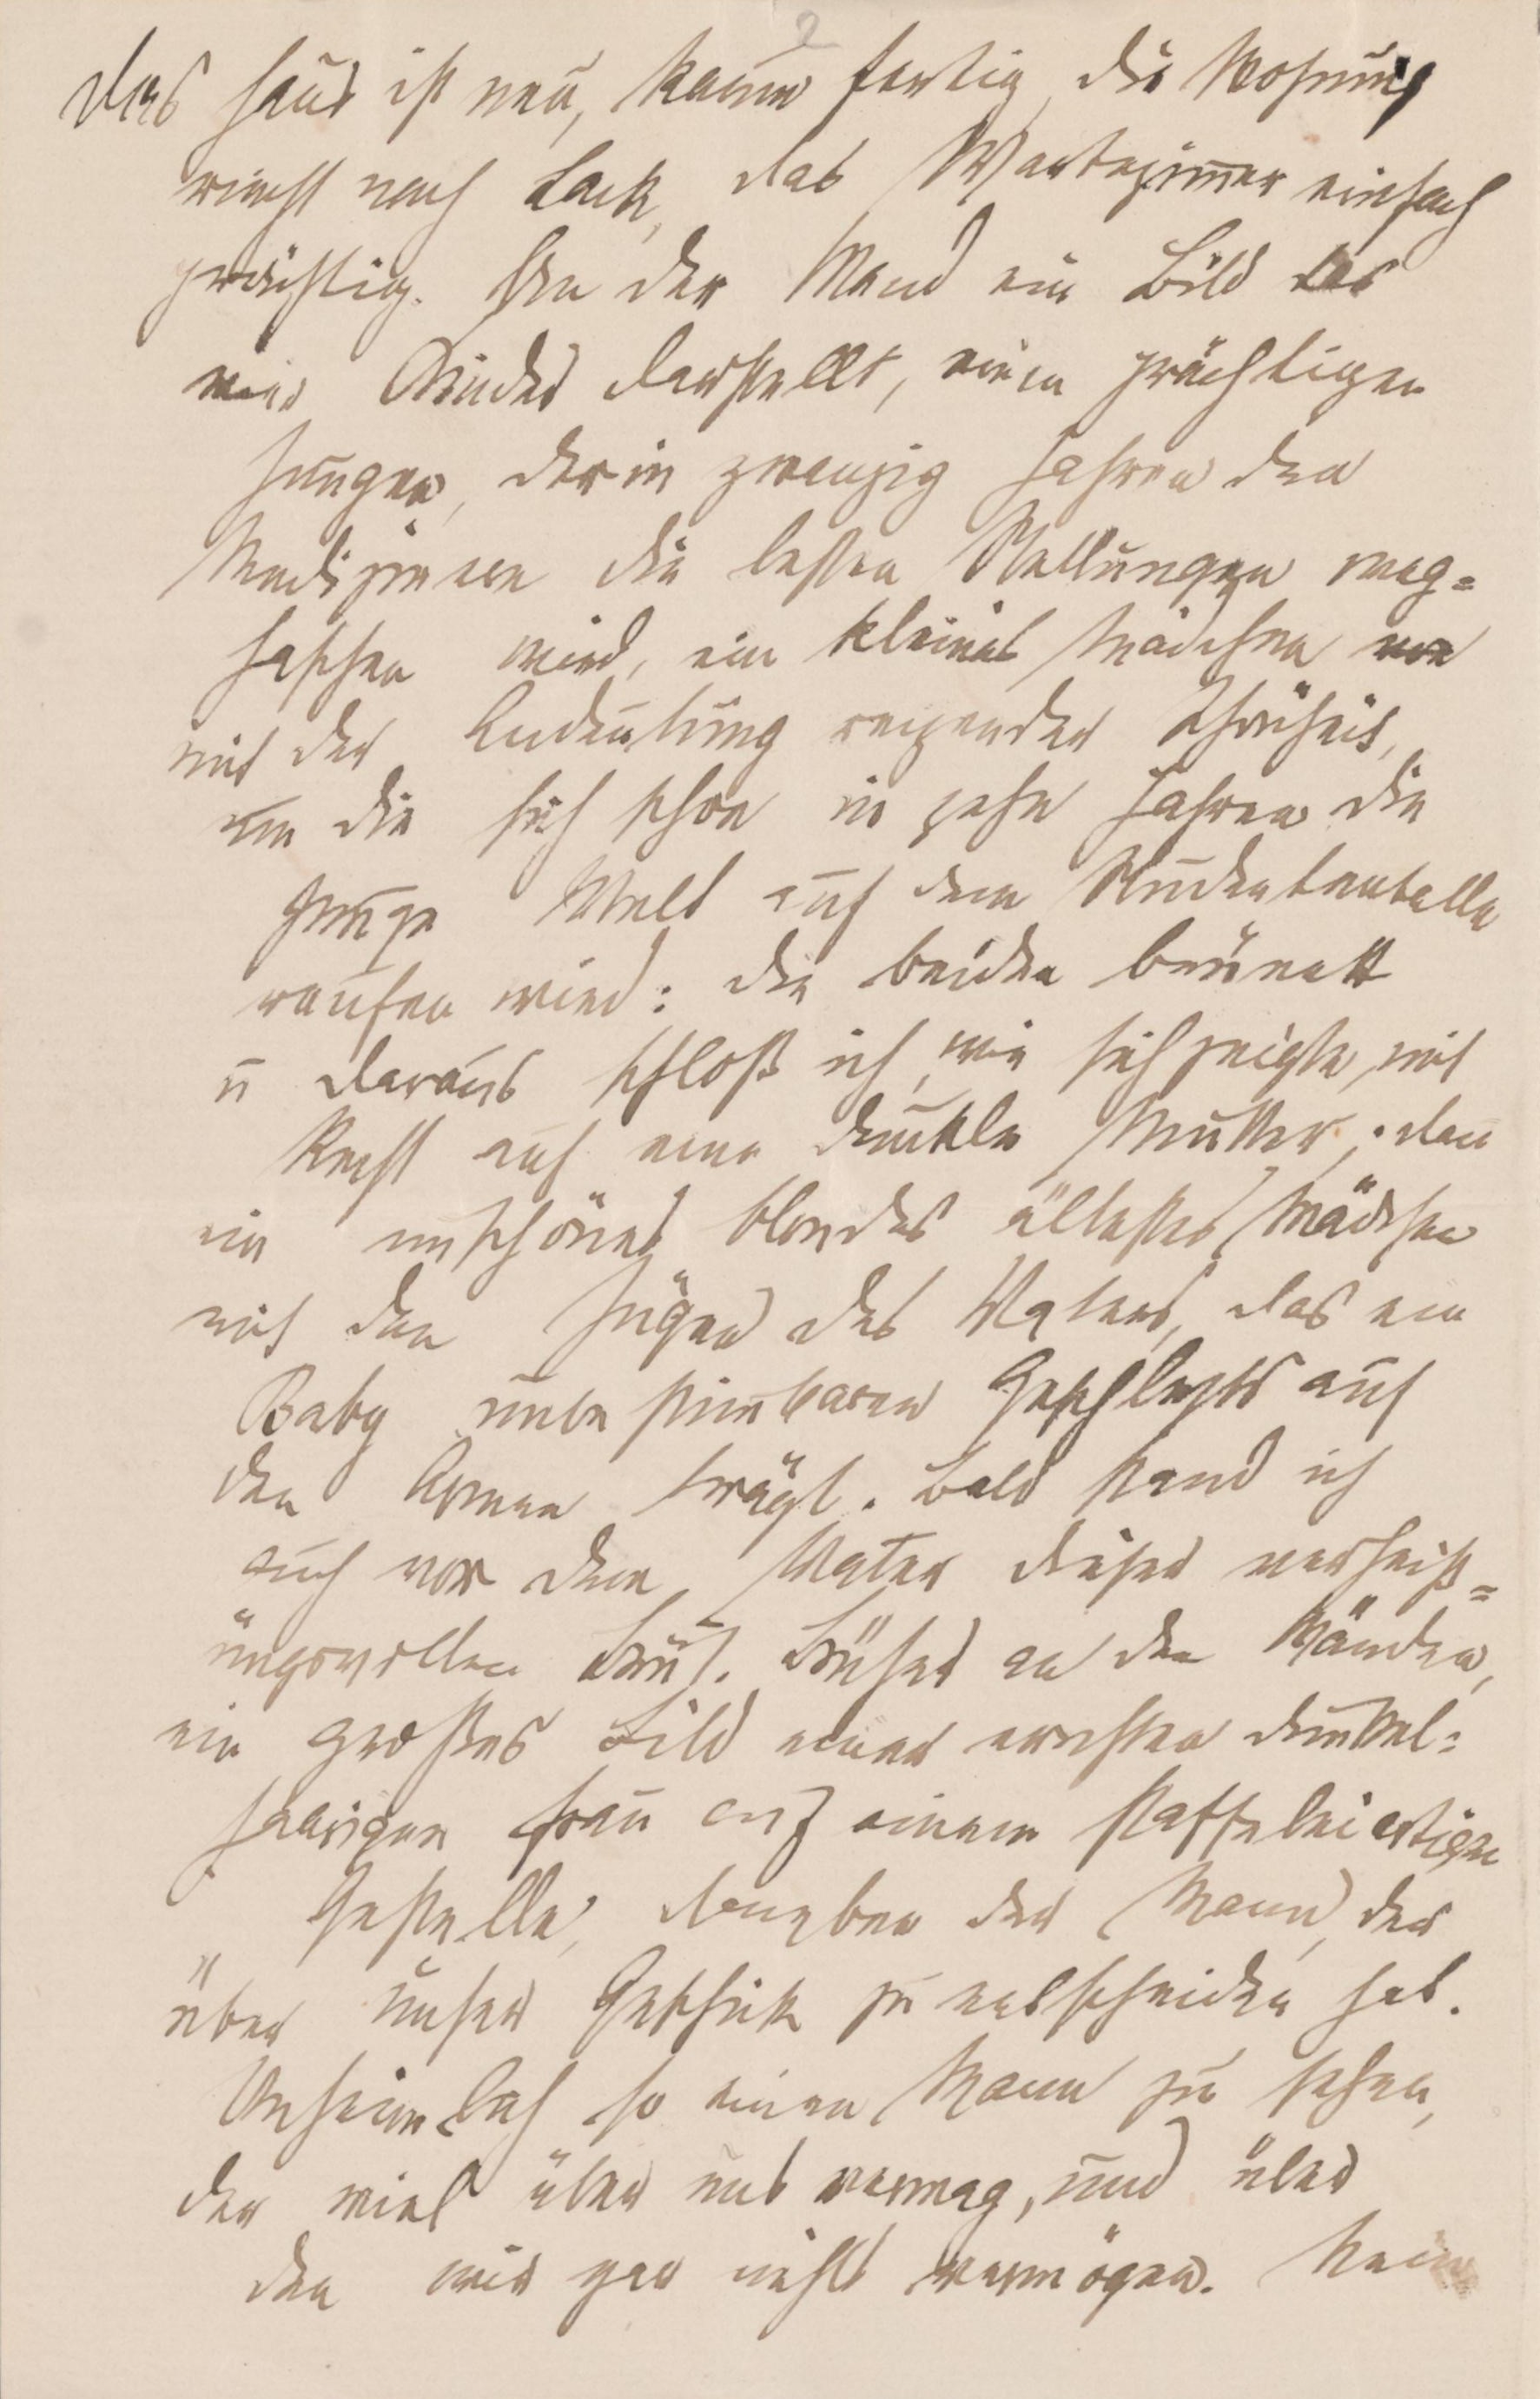 2
Das Haus ist neu, kaum fertig, die Wohnung
riecht nach Lack, das Wartezimmer einfach
prächtig. An der Wand ein Bild das
vier Kinder darstellt, einen prächtigen
Jungen, der in zwanzig Jahren den
Medizinern die besten Stellungen weg=
haschen wird, ein kleines Mädchen
mit der Andeutung reizender Schönheit,
um die sich schon in zehn Jahren die
junge Welt auf dem Studentenballe
raufen wird: die beiden brünett
u daraus schloß ich, wie sich zeigte, mit
Recht auf eine dunkle Mutter; dan
ein unschönes blondes ältestes Mädchen
mit den Zügen des Vaters, das ein
Baby unbestimbaren Geschlechts auf
den Armen trägt. Bald stand ich
auch vor dem Vater dieser verheiß=
ungsvollen Brut. Bücher an den Wänden,
ein großes Bild einer ernsten dunkel=
haarigen Frau auf einem staffeleiartigen
Gestelle, daneben der Mann, der
über unser Geschick zu entscheiden hat.
Unheimlich so einen Mann zu sehen,
der viel über uns vermag, und über
den wir gar nichts vermögen. Nein